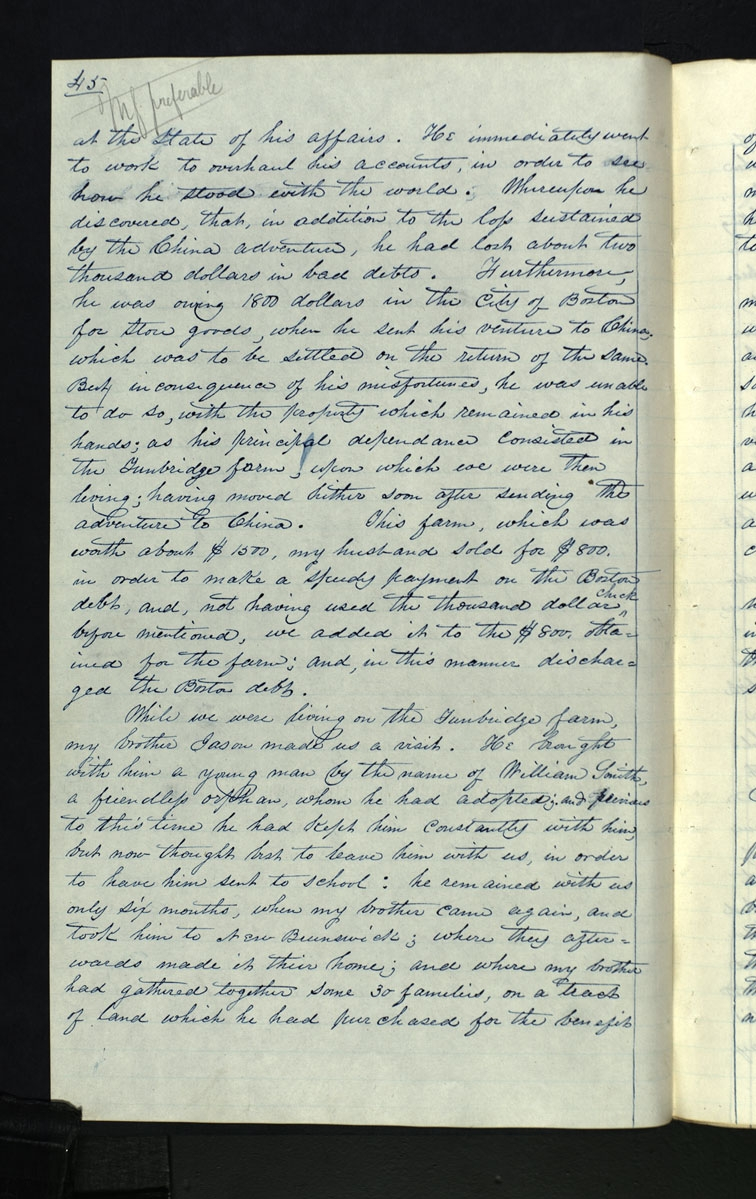 45
Mf preferable
at the State of his affairs. He immediately went
to work to overhaul his accounts, in order to see
how he stood with the world. Whereupon he
discovered, that, in addition to the loss sustained
by the China adventure, he had lost about two
thousand dollars in bad debts. Furthermore,
he was owing 1800 dollars in the City of Boston
for Store goods, when he sent his venture to China;
which was to be settled on the return of the same.
But, in consequence of his misfortunes, he was unable
to do so, with the property which remained in his
hands; as his principal dependance consisted in
the Tunbridge farm, upon which we were then
living; having moved hither soon after sending the
adventure to China. This farm, which was
worth about $1500, my husband sold for $800.
in order to make a speedy payment on the Boston
debt, and, not having used the thousand dollar check
before mentioned, we added it to the $800. obta=
ined for the farm; and, in this manner dischar=
ged the Boston debt.
While we were living on the Tunbridge farm,
my brother Jason made us a visit. He brought
with him a young man by the name of William Smith,
a friendless orphan, whom he had adopted; and previous
to this time he had kept him constantly with him,
but now thought best to leave him with us, in order
to have him sent to school: he remained with us
only six months, when my brother came again, and
took him to New Brunswick; where they after=
wards made it their home; and where my brother
had gathered together some 30 families, on a tract
of land which he had purchased for the benefit